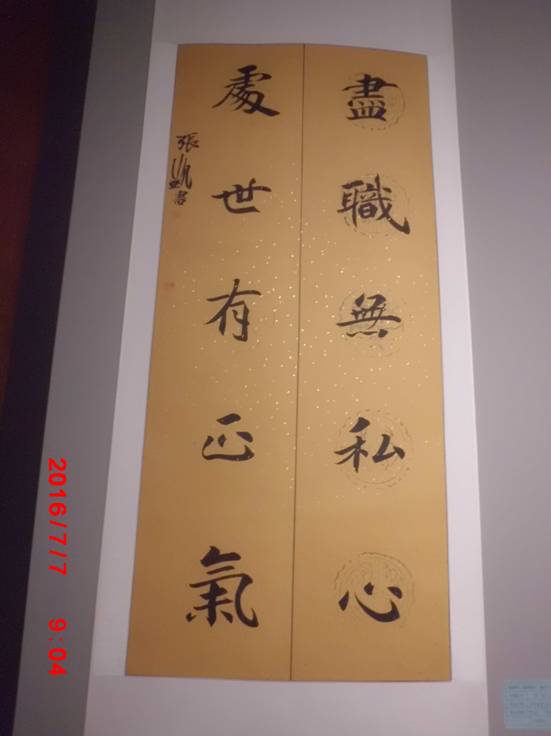 盡職無私心
處世有正氣
張
書
2016/7/7 9:04